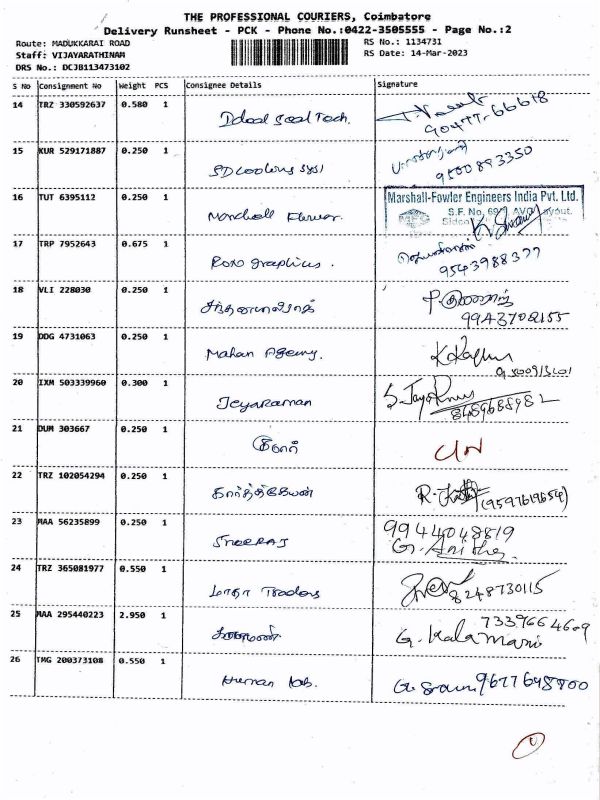 THE PROFESSIONAL COURIERS, Coimbatore
Delivery Runsheet - PCK - Phone No.:0422-3505555 - Page No.:2
Route: MADUKKARAI ROAD
Staff: VIJAYARATHINAM
DRS No.: DCJB113473102
RS No.: 1134731
RS Date: 14-Mar-2023
S No Consignment No Weight PCS Consignee Details Signature
14 TRZ 330592637 0.580 1 Ideal Seal Tech. 90477-66618
15 KUR 529171887 0.250 1 SD Cooling 9500893350
16 TUT 6395112 0.250 1 Marshall
Marshall-Fowler Engineers India Pvt. Ltd.
S.F. No.
17 TRP 7952643 0.675 1 Roxo graphics. 9543988377
18 VLI 228030 0.250 1 9943702155
19 DDG 4731063 0.250 1 Mahan Agency.
20 IXM 503339960 0.300 1 Jeyaraman 8489688982
21 DUM 303667 0.250 1
22 TRZ 102054294 0.250 1 கார்த்திகேயன் (9597619654)
23 MAA 56235899 0.250 1 SREERAJ 9944048819
24 TRZ 365081977 0.550 1 Traders 8248730115
25 MAA 295440223 2.950 1 7339664609
G. Kalamani
26 TMG 200373108 0.550 1 Human lab. 9677698800